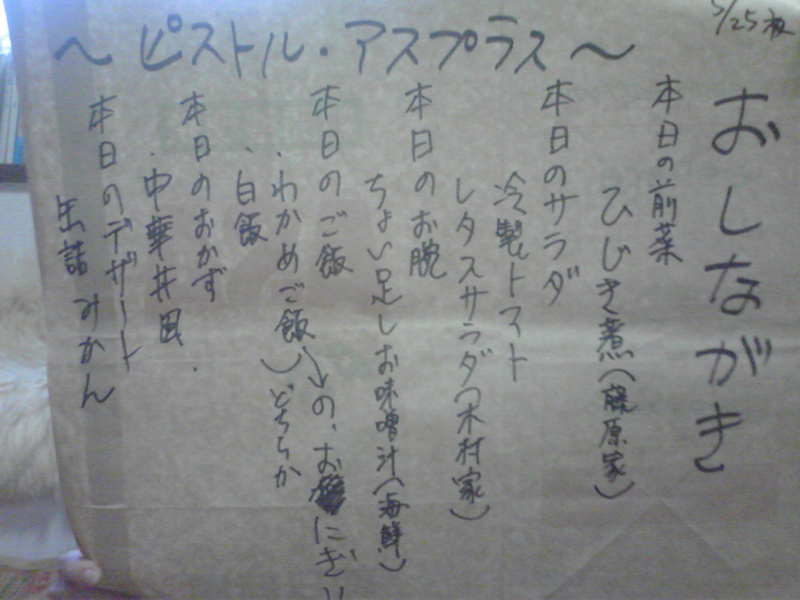 5/25夜
〜ピストル・アスプラス〜
おしながき
本日の前菜
ひじき煮(藤原家)
本日のサラダ
冷製トマト
レタスサラダ(木村家)
本日のお腕
ちょい足しお味噌汁(海鮮)
本日のご飯
・わかめご飯
・白飯
どちらか
の、おにぎり
本日のおかず
・中華丼風
本日のデザート
缶詰 みかん